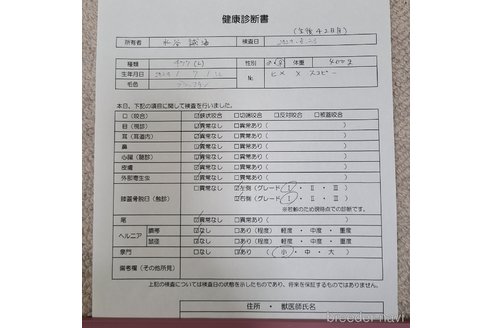 健康診断書
(生後42日目)
所有者 検査日
種類 チワワ(L) 性別 体重 400g
生年月日 № ヒメ×スヌーピー
毛色
本日、下記の項目に関して検査を行いました。
口(咬合) ☑鋏状咬合 □切端咬合 □反対咬合 □被蓋咬合
目(視診) ☑異常なし □異常あり( )
耳(耳道内) ☑異常なし □異常あり( )
鼻 ☑異常なし □異常あり( )
心臓(聴診) ☑異常なし □異常あり( )
皮膚 ☑異常なし □異常あり( )
外部寄生虫 ☑異常なし □異常あり( )
膝蓋骨脱臼(触診) □異常なし ☑左側(グレード Ⅰ・Ⅱ・Ⅲ)
☑右側(グレード Ⅰ・Ⅱ・Ⅲ)
※若齢のため現時点での診断です。
尾 ☑異常なし □異常あり( )
ヘルニア 臍帯 ☑なし □あり(程度) 軽度・中度・重度
鼠径 ☑なし □あり(程度) 軽度・中度・重度
泉門 □なし ☑あり( 小・中・大 )
備考欄(その他所見)
上記の検査については検査日の状態を示したものであり、将来を保証するものではありません。
住所・獣医師氏名
breeder-navi